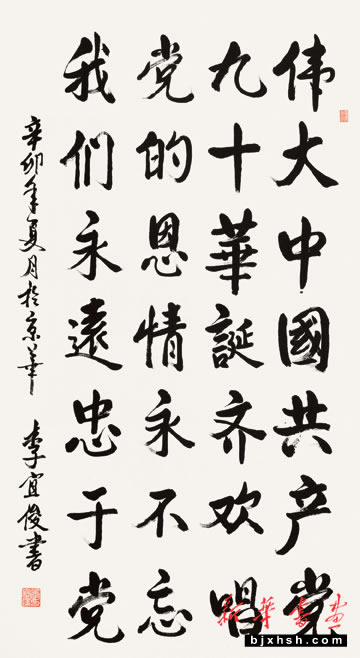 伟大中國共产党
九十華誕齐欢唱
党的恩情永不忘
我们永遠忠于党
辛卯年夏月於京华 李宜俊書
新华書画
bjxhsh.com